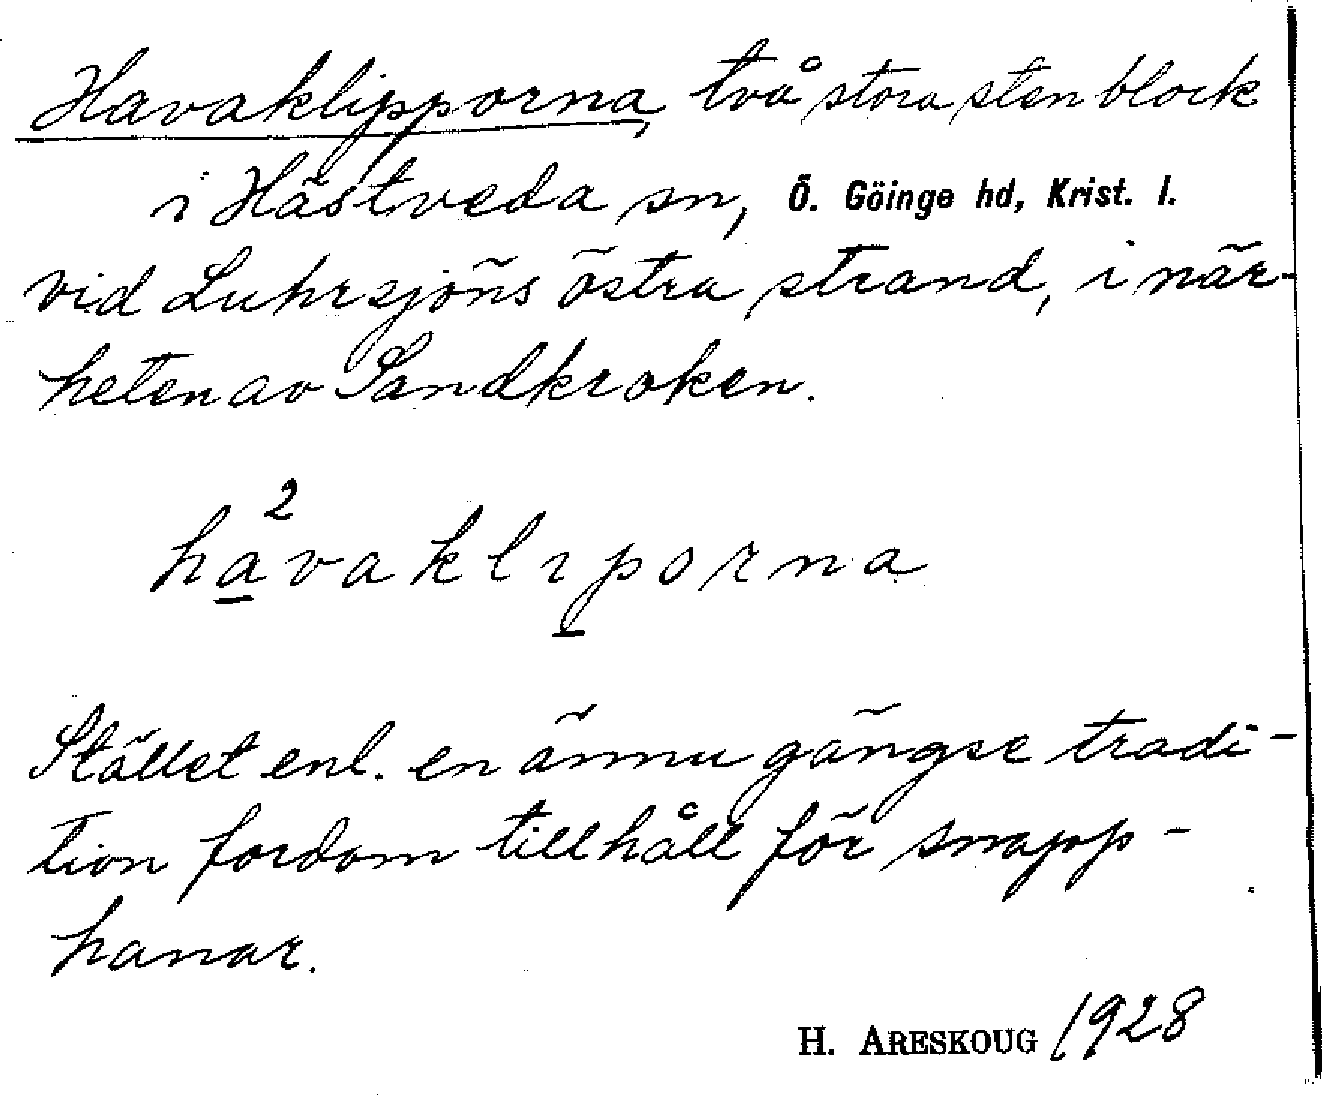 Havaklipporna, två stora stenblock
i Hästveda sn, Ö. Göinge hd, Krist. l.
vid Luhrsjöns östra strand, i när-
heten av Sandkroken.
2
havakliporna
Stället enl. en ännu gängse tradi-
tion fordom tillhåll för snapp-
hanar.
H. ARESKOUG 1928